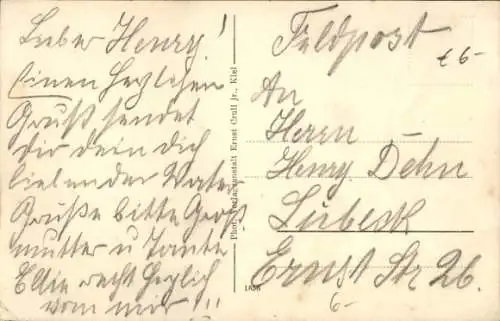 Lieber Henry!
Einen herzlichen
Gruß sendet
dir dein dich
liebender Vater
Grüße bitte Groß
mutter u Tante
Ella recht herzlich
von mir!!
Photogr. Kunstanstalt Ernst Grull jr., Kiel
Feldpost
£6-
An
Herrn
Henry Dehn
Lübeck
Ernst Str 26.
6-